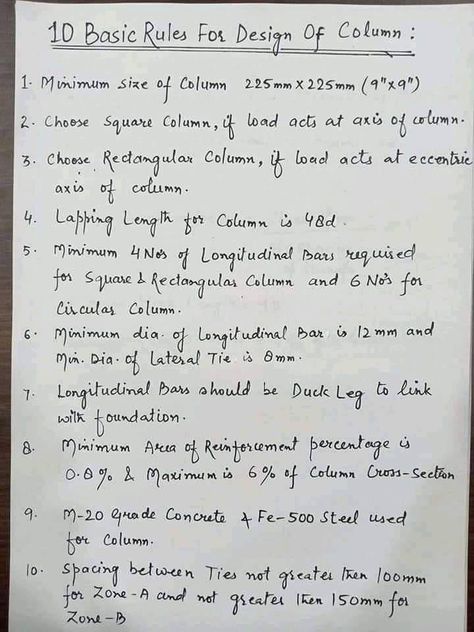 10 Basic Rules For Design Of Column :
1. Minimum size of Column 225mm x 225mm (9"x9")
2. Choose Square Column, if load acts at axis of column.
3. Choose Rectangular Column, if load acts at eccentric
axis of column.
4. Lapping Length for Column is 48d.
5. Minimum 4 Nos of Longitudinal Bars required
for Square & Rectangular Column and 6 No's for
Circular Column.
6. Minimum dia. of Longitudinal Bar is 12mm and
Min. Dia. of Lateral Tie is 8mm.
7. Longitudinal Bars should be Duck Leg to link
with foundation.
8. Minimum Area of Reinforcement percentage is
0.8% & Maximum is 6% of Column Cross-Section
9. M-20 Grade Concrete & Fe-500 Steel used
for Column.
10. Spacing between Ties not greater then 100mm
for Zone-A and not greater then 150mm for
Zone-B